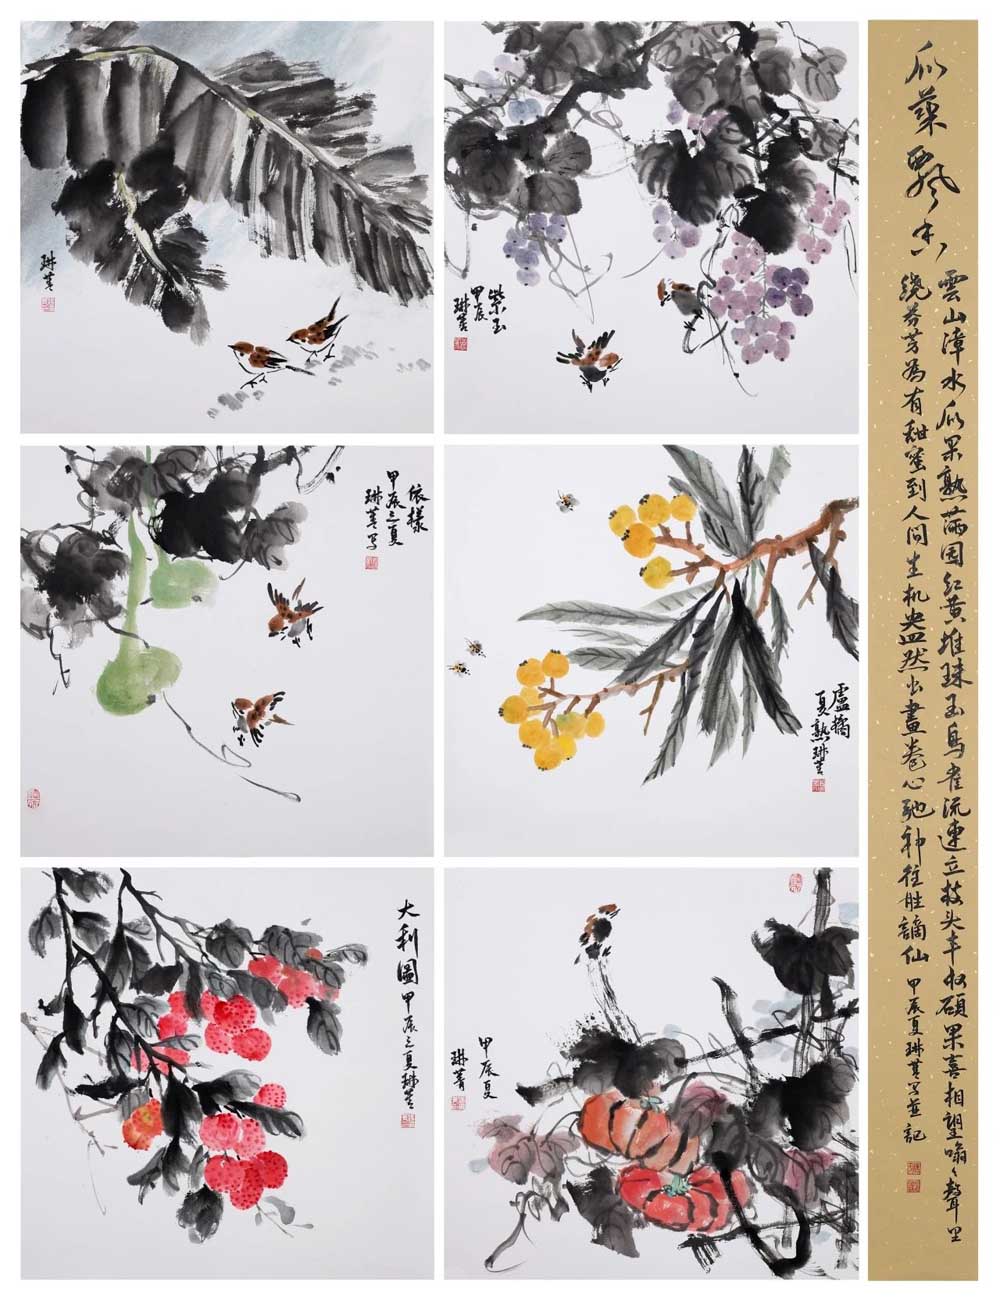 琳菁
紫玉
甲辰
琳菁
依様
甲辰之夏
琳菁写
盧橘
夏熟琳菁
大利圖甲辰之夏琳菁
甲辰夏
琳菁
瓜菓飄香
雲山漳水瓜果熟蒂园红黄堆珠玉鸟雀流连立枝头丰收硕果喜相望嗡々聲里
绕芬芳為有甜蜜到人间生机盎然出畫卷心驰神往胜謫仙
甲辰夏琳菁写並記